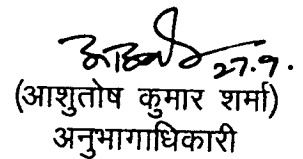 27.9.
(आशुतोष कुमार शर्मा)
अनुभागाधिकारी